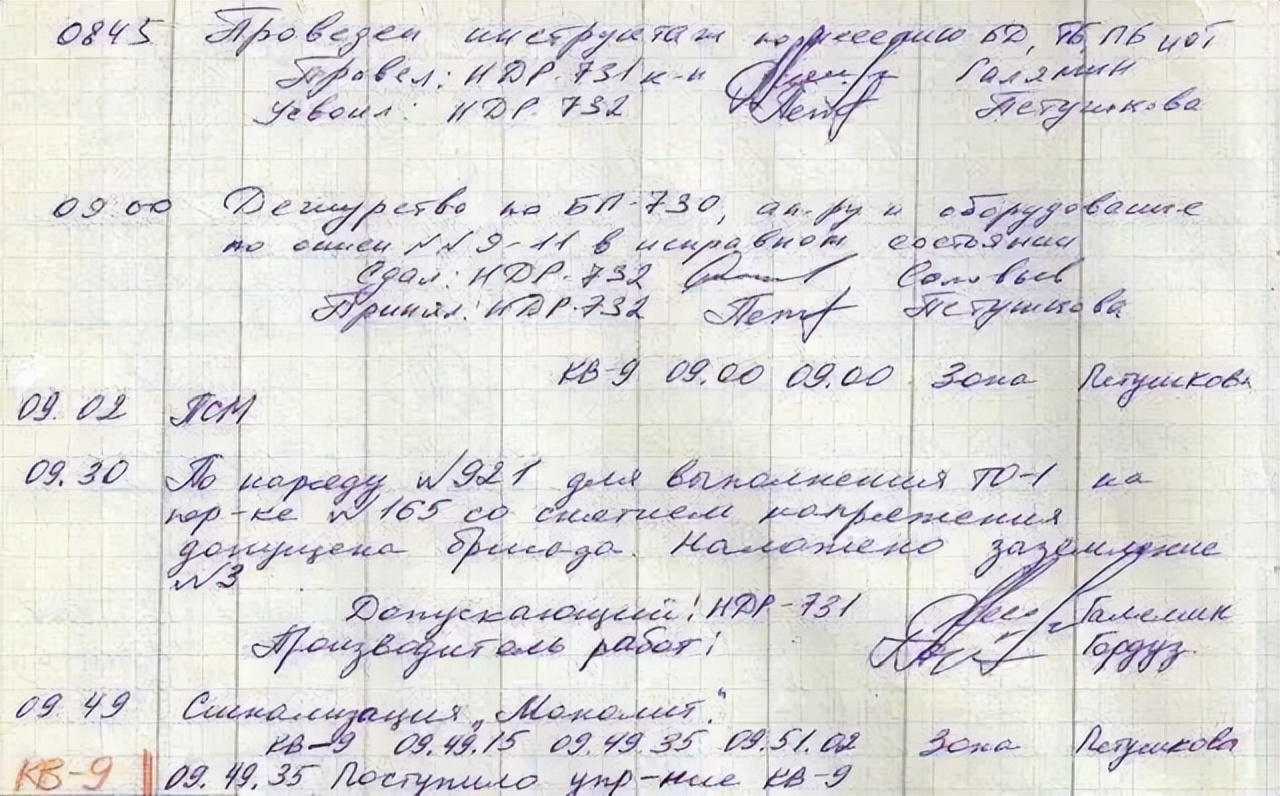 0845 Проведен инструктаж по несению БД, ТБ, ПБ и ОТ
Провел: НДР-731 к-н Галямин
Усвоил: НДР-732 Петушкова
09.00 Дежурство по БП-730, ап-ру и оборудование
по описи №№ 9-11 в исправном состоянии
Сдал: НДР-732 Соловьев
Принял: НДР-732 Петушкова
КВ-9 09.00 09.00 Зона Петушкова
09.02 ПСМ
09.30 По наряду №921 для выполнения ТО-1 на
пер-ке №165 со снятием напряжения
допущена бригада. Наложено заземление
№3
Допускающий: НДР-731 Галямин
Производитель работ: Гордуз
09.49 Сигнализация „Монолит"
КВ-9 09.49.15 09.49.35 09.51.02 Зона Петушкова
КВ-9 09.49.35 Поступило упр-ние КВ-9